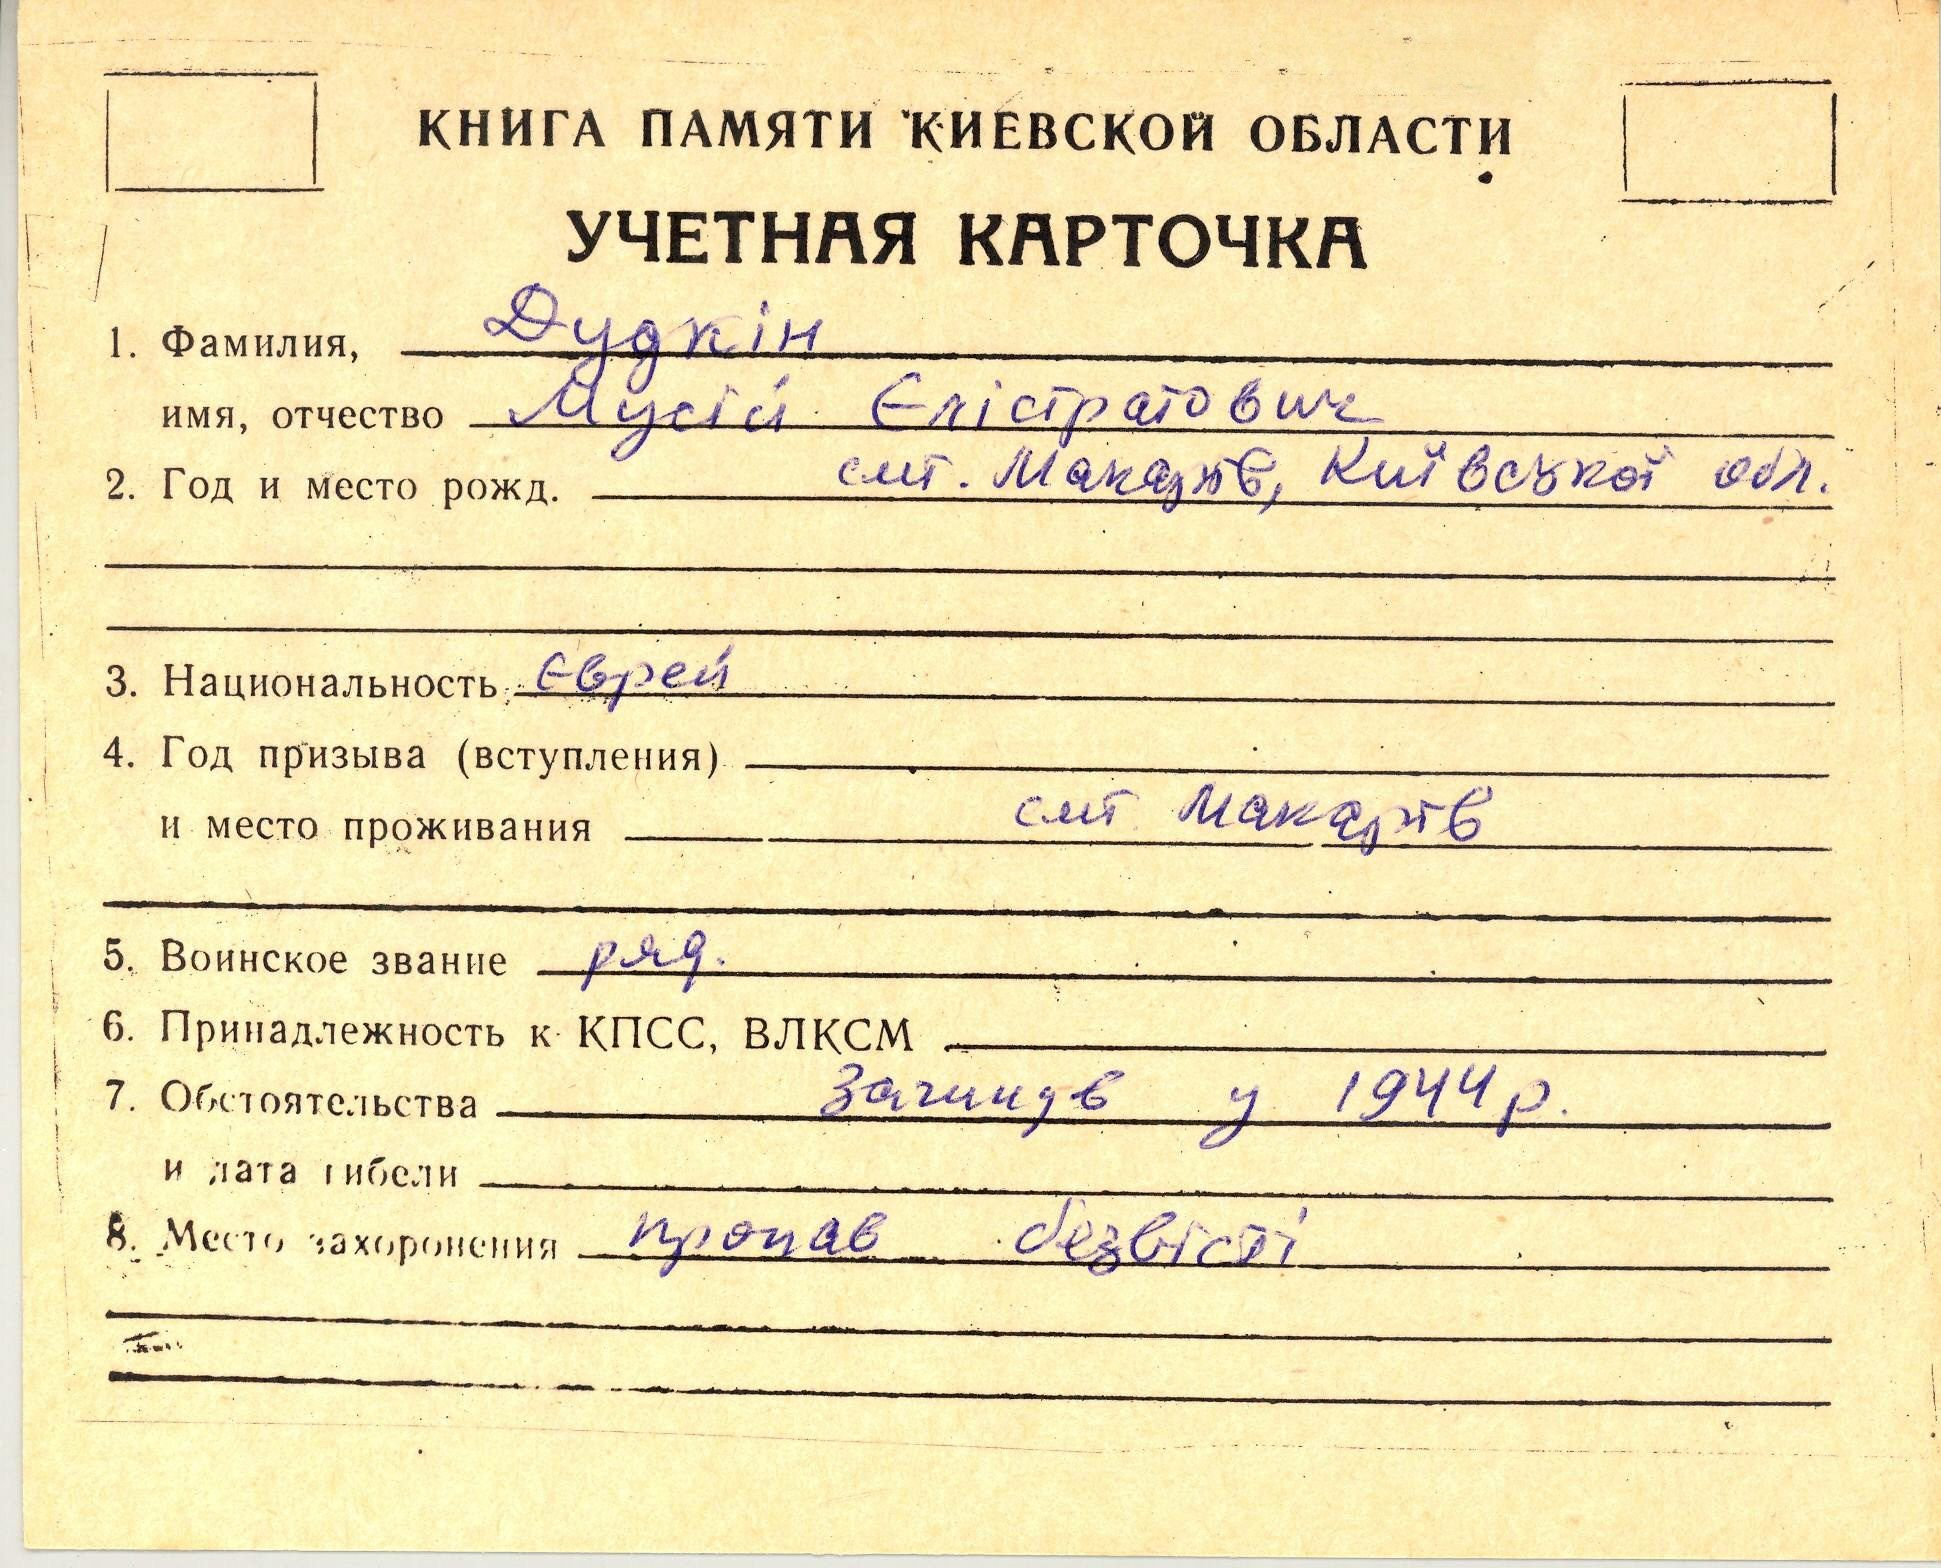 КНИГА ПАМЯТИ КИЕВСКОЙ ОБЛАСТИ
УЧЕТНАЯ КАРТОЧКА
1. Фамилия, Дудкін
имя, отчество Мусій Єлістратович
2. Год и место рожд. смт. Макарів, Київської обл.
3. Национальность Єврей
4. Год призыва (вступления)
и место проживания смт. Макарів
5. Воинское звание ряд.
6. Принадлежность к КПСС, ВЛКСМ
7. Обстоятельства Загинув у 1944 р.
и дата гибели
8. Место захоронения пропав безвісті